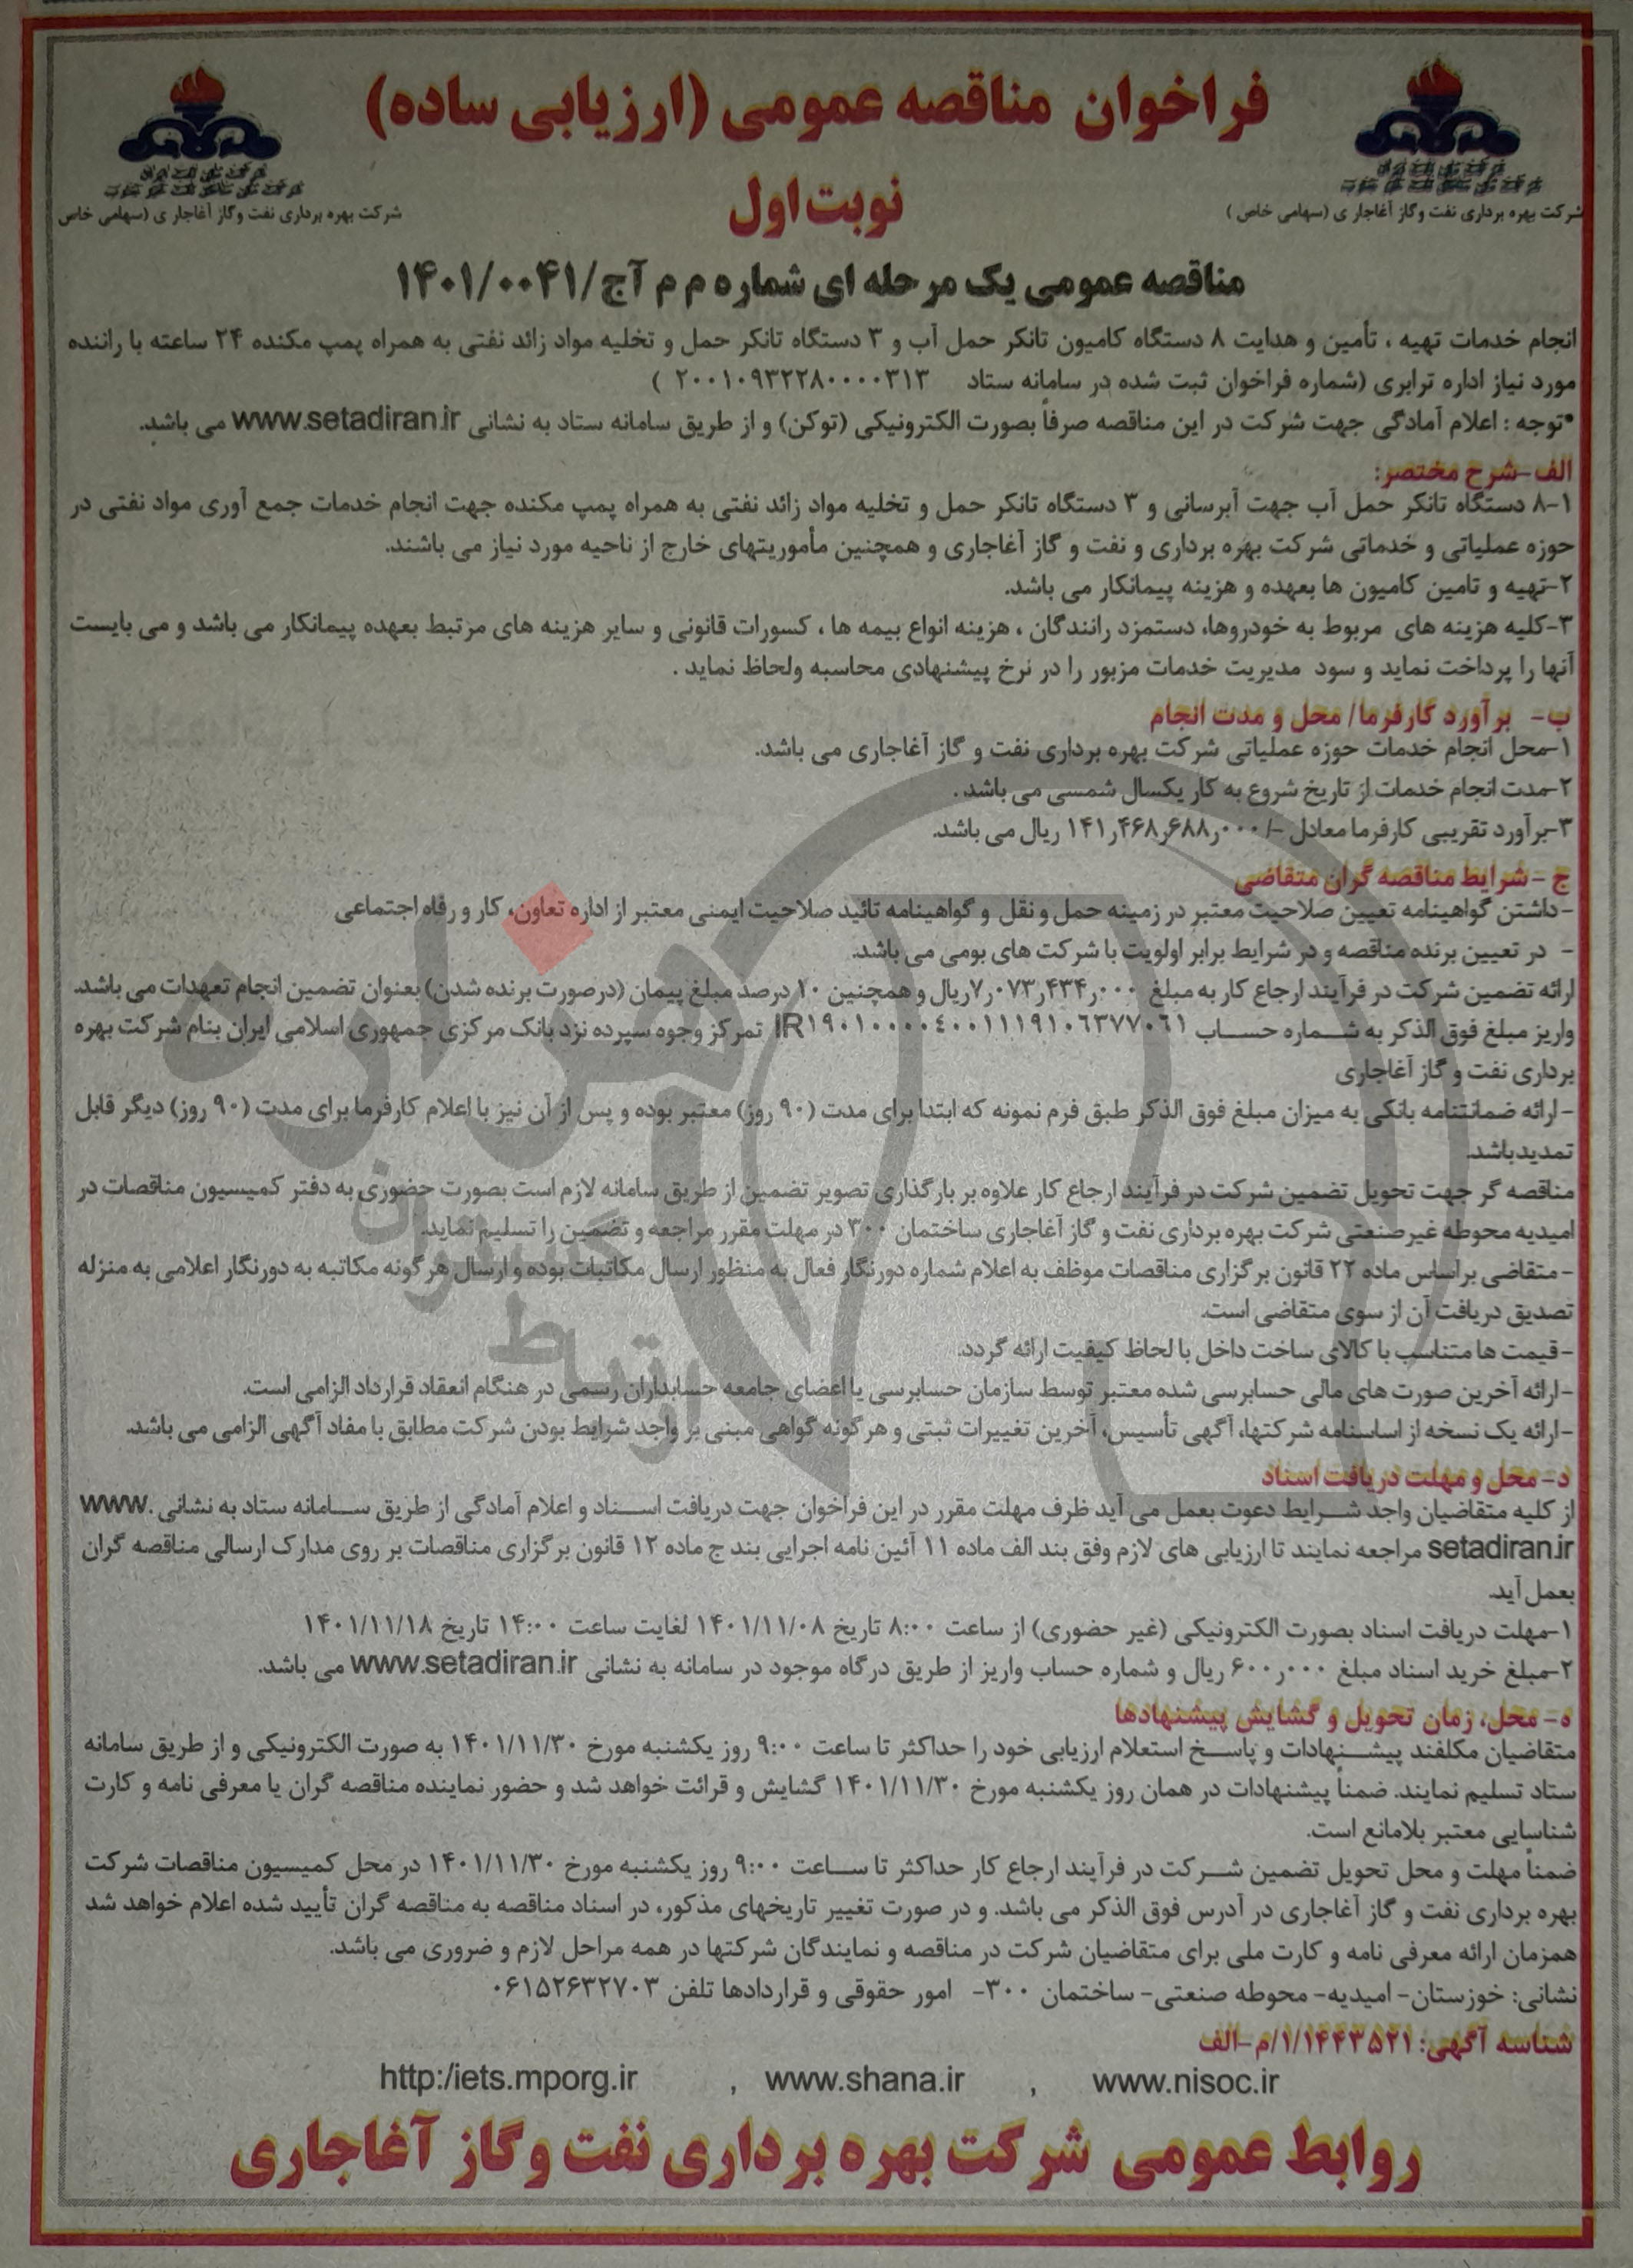 فراخوان مناقصه عمومی (ارزیابی ساده)
نوبت اول
شرکت بهره برداری نفت وگاز آغاجاری (سهامی خاص)
شرکت بهره برداری نفت وگاز آغاجاری (سهامی خاص
مناقصه عمومی یک مرحله ای شماره م م آج/۱۴۰۱/۰۰۴۱
انجام خدمات تهیه ، تأمین و هدایت ۸ دستگاه کامیون تانکر حمل آب و ۳ دستگاه تانکر حمل و تخلیه مواد زائد نفتی به همراه پمپ مکنده ۲۴ ساعته با راننده
مورد نیاز اداره ترابری (شماره فراخوان ثبت شده در سامانه ستاد ۲۰۰۱۰۹۳۲۲۸۰۰۰۰۳۱۳ )
*توجه : اعلام آمادگی جهت شرکت در این مناقصه صرفاً بصورت الکترونیکی (توکن) و از طریق سامانه ستاد به نشانی www.setadiran.ir می باشد.
الف-شرح مختصر:
۱-۸ دستگاه تانکر حمل آب جهت آبرسانی و ۳ دستگاه تانکر حمل و تخلیه مواد زائد نفتی به همراه پمپ مکنده جهت انجام خدمات جمع آوری مواد نفتی در
حوزه عملیاتی و خدماتی شرکت بهره برداری و نفت و گاز آغاجاری و همچنین مأموریتهای خارج از ناحیه مورد نیاز می باشند.
۲-تهیه و تامین کامیون ها بعهده و هزینه پیمانکار می باشد.
۳-کلیه هزینه های مربوط به خودروها، دستمزد رانندگان ، هزینه انواع بیمه ها ، کسورات قانونی و سایر هزینه های مرتبط بعهده پیمانکار می باشد و می بایست
آنها را پرداخت نماید و سود مدیریت خدمات مزبور را در نرخ پیشنهادی محاسبه ولحاظ نماید .
ب- برآورد کارفرما/ محل و مدت انجام
۱-محل انجام خدمات حوزه عملیاتی شرکت بهره برداری نفت و گاز آغاجاری می باشد.
۲-مدت انجام خدمات از تاریخ شروع به کار یکسال شمسی می باشد .
۳-برآورد تقریبی کارفرما معادل -/۱۴۱٫۴۶۸٫۶۸۸٫۰۰۰ ریال می باشد.
ج - شرایط مناقصه گران متقاضی
-داشتن گواهینامه تعیین صلاحیت معتبر در زمینه حمل و نقل و گواهینامه تائید صلاحیت ایمنی معتبر از اداره تعاون، کار و رفاه اجتماعی
- در تعیین برنده مناقصه و در شرایط برابر اولویت با شرکت های بومی می باشد.
ارائه تضمین شرکت در فرآیند ارجاع کار به مبلغ ۷٫۰۷۳٫۴۳۴٫۰۰۰ریال و همچنین ۱۰ درصد مبلغ پیمان (درصورت برنده شدن) بعنوان تضمین انجام تعهدات می باشد.
واریز مبلغ فوق الذکر به شماره حساب IR۱۹۰۱۰۰۰۰٤۰۰۱۱۱۹۱۰٦۳۷۷۰٦۱ تمرکز وجوه سپرده نزد بانک مرکزی جمهوری اسلامی ایران بنام شرکت بهره
برداری نفت و گاز آغاجاری
-ارائه ضمانتنامه بانکی به میزان مبلغ فوق الذکر طبق فرم نمونه که ابتدا برای مدت (۹۰ روز) معتبر بوده و پس از آن نیز با اعلام کارفرما برای مدت (۹۰ روز) دیگر قابل
تمدیدباشد.
مناقصه گر جهت تحویل تضمین شرکت در فرآیند ارجاع کار علاوه بر بارگذاری تصویر تضمین از طریق سامانه لازم است بصورت حضوری به دفتر کمیسیون مناقصات در
امیدیه محوطه غیرصنعتی شرکت بهره برداری نفت و گاز آغاجاری ساختمان ۳۰۰ در مهلت مقرر مراجعه و تضمین را تسلیم نماید.
-متقاضی براساس ماده ۲۲ قانون برگزاری مناقصات موظف به اعلام شماره دورنگار فعال به منظور ارسال مکاتبات بوده و ارسال هرگونه مکاتبه به دورنگار اعلامی به منزله
تصدیق دریافت آن از سوی متقاضی است.
-قیمت ها متناسب با کالای ساخت داخل با لحاظ کیفیت ارائه گردد.
-ارائه آخرین صورت های مالی حسابرسی شده معتبر توسط سازمان حسابرسی یا اعضای جامعه حسابداران رسمی در هنگام انعقاد قرارداد الزامی است.
-ارائه یک نسخه از اساسنامه شرکتها، آگهی تأسیس، آخرین تغییرات ثبتی و هرگونه گواهی مبنی بر واجد شرایط بودن شرکت مطابق با مفاد آگهی الزامی می باشد.
د- محل و مهلت دریافت اسناد
از کلیه متقاضیان واجد شرایط دعوت بعمل می آید ظرف مهلت مقرر در این فراخوان جهت دریافت اسناد و اعلام آمادگی از طریق سامانه ستاد به نشانی www.
setadiran.ir مراجعه نمایند تا ارزیابی های لازم وفق بند الف ماده ۱۱ آئین نامه اجرایی بند ج ماده ۱۲ قانون برگزاری مناقصات بر روی مدارک ارسالی مناقصه گران
بعمل آید.
۱-مهلت دریافت اسناد بصورت الکترونیکی (غیر حضوری) از ساعت ۸:۰۰ تاریخ ۱۴۰۱/۱۱/۰۸ لغایت ساعت ۱۴:۰۰ تاریخ ۱۴۰۱/۱۱/۱۸
۲-مبلغ خرید اسناد مبلغ ۶۰۰٫۰۰۰ ریال و شماره حساب واریز از طریق درگاه موجود در سامانه به نشانی www.setadiran.ir می باشد.
ه- محل، زمان تحویل و گشایش پیشنهادها
متقاضیان مکلفند پیشنهادات و پاسخ استعلام ارزیابی خود را حداکثر تا ساعت ۹:۰۰ روز یکشنبه مورخ ۱۴۰۱/۱۱/۳۰ به صورت الکترونیکی و از طریق سامانه
ستاد تسلیم نمایند. ضمناً پیشنهادات در همان روز یکشنبه مورخ ۱۴۰۱/۱۱/۳۰ گشایش و قرائت خواهد شد و حضور نماینده مناقصه گران یا معرفی نامه و کارت
شناسایی معتبر بلامانع است.
ضمناً مهلت و محل تحویل تضمین شرکت در فرآیند ارجاع کار حداکثر تا ساعت ۹:۰۰ روز یکشنبه مورخ ۱۴۰۱/۱۱/۳۰ در محل کمیسیون مناقصات شرکت
بهره برداری نفت و گاز آغاجاری در آدرس فوق الذکر می باشد. و در صورت تغییر تاریخهای مذکور، در اسناد مناقصه به مناقصه گران تأیید شده اعلام خواهد شد
همزمان ارائه معرفی نامه و کارت ملی برای متقاضیان شرکت در مناقصه و نمایندگان شرکتها در همه مراحل لازم و ضروری می باشد.
نشانی: خوزستان- امیدیه- محوطه صنعتی- ساختمان ۳۰۰- امور حقوقی و قراردادها تلفن ۰۶۱۵۲۶۳۲۷۰۳
شناسه آگهی: ۱/۱۴۴۳۵۲۱/م-الف
www.nisoc.ir , www.shana.ir , http:/iets.mporg.ir
روابط عمومی شرکت بهره برداری نفت وگاز آغاجاری
هزاره
ارتباط گستران